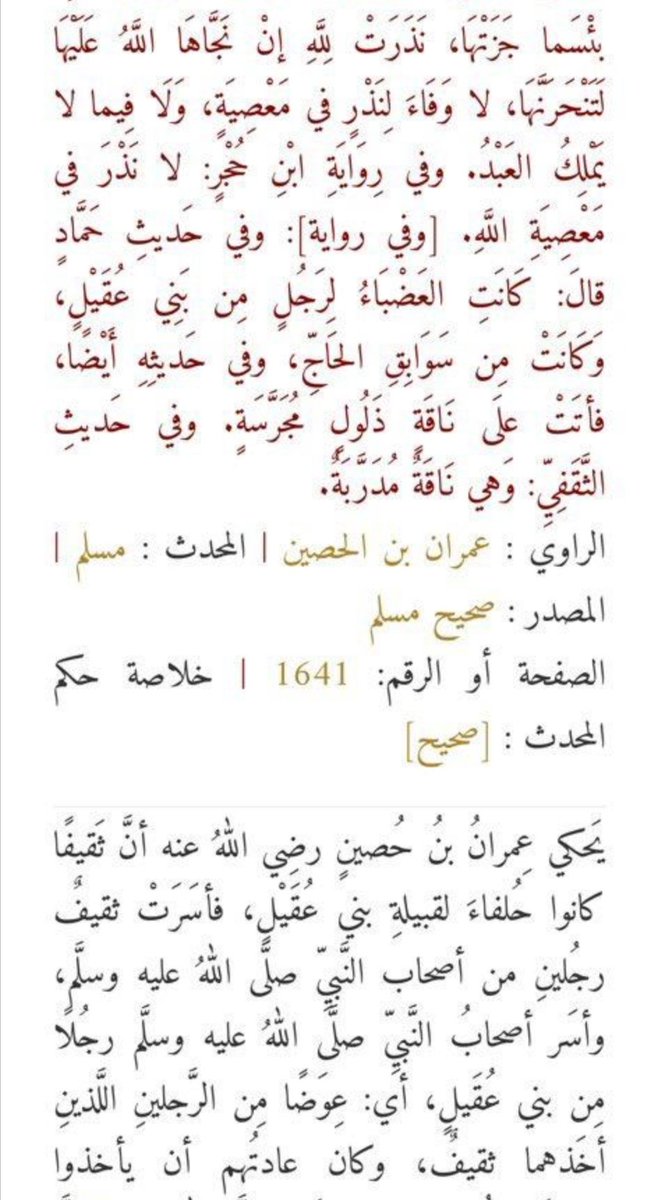 بئْسَما جَزَتْهَا، نَذَرَتْ لِلَّهِ إنْ نَجَّاهَا اللَّهُ عَلَيْهَا
لَتَنْحَرَنَّهَا، لا وَفَاءَ لِنَذْرٍ في مَعْصِيَةٍ، وَلَا فِيما لا
يَمْلِكُ العَبْدُ. وفي رِوَايَةِ ابْنِ حُجْرٍ: لا نَذْرَ في
مَعْصِيَةِ اللَّهِ. [وفي رواية]: وفي حَديثِ حَمَّادٍ
قالَ: كَانَتِ العَضْبَاءُ لِرَجُلٍ مِن بَنِي عُقَيْلٍ،
وَكَانَتْ مِن سَوَابِقِ الحَاجِّ، وفي حَديثِهِ أَيْضًا،
فأتَتْ علَى نَاقَةٍ ذَلُولٍ مُجَرَّسَةٍ. وفي حَديثِ
الثَّقَفِيِّ: وَهي نَاقَةٌ مُدَرَّبَةٌ.
الراوي : عمران بن الحصين | المحدث : مسلم |
المصدر : صحيح مسلم
الصفحة أو الرقم: 1641 | خلاصة حكم
المحدث : [صحيح]
يَحكي عِمرانُ بنُ حُصينٍ رضِي اللهُ عنه أنَّ ثَقيفًا
كانوا حُلفاءَ لقبيلةِ بني عُقَيْلٍ، فأسَرَتْ ثقيفٌ
رجُلينِ من أصحاب النَّبيِّ صلَّى اللهُ عليه وسلَّم،
وأسَر أصحابُ النَّبيِّ صلَّى اللهُ عليه وسلَّم رجُلًا
مِن بني عُقَيلٍ، أي: عِوَضًا مِن الرَّجلينِ اللَّذينِ
أخَذهما ثقيفٌ، وكان عادتُهم أن يأخذوا